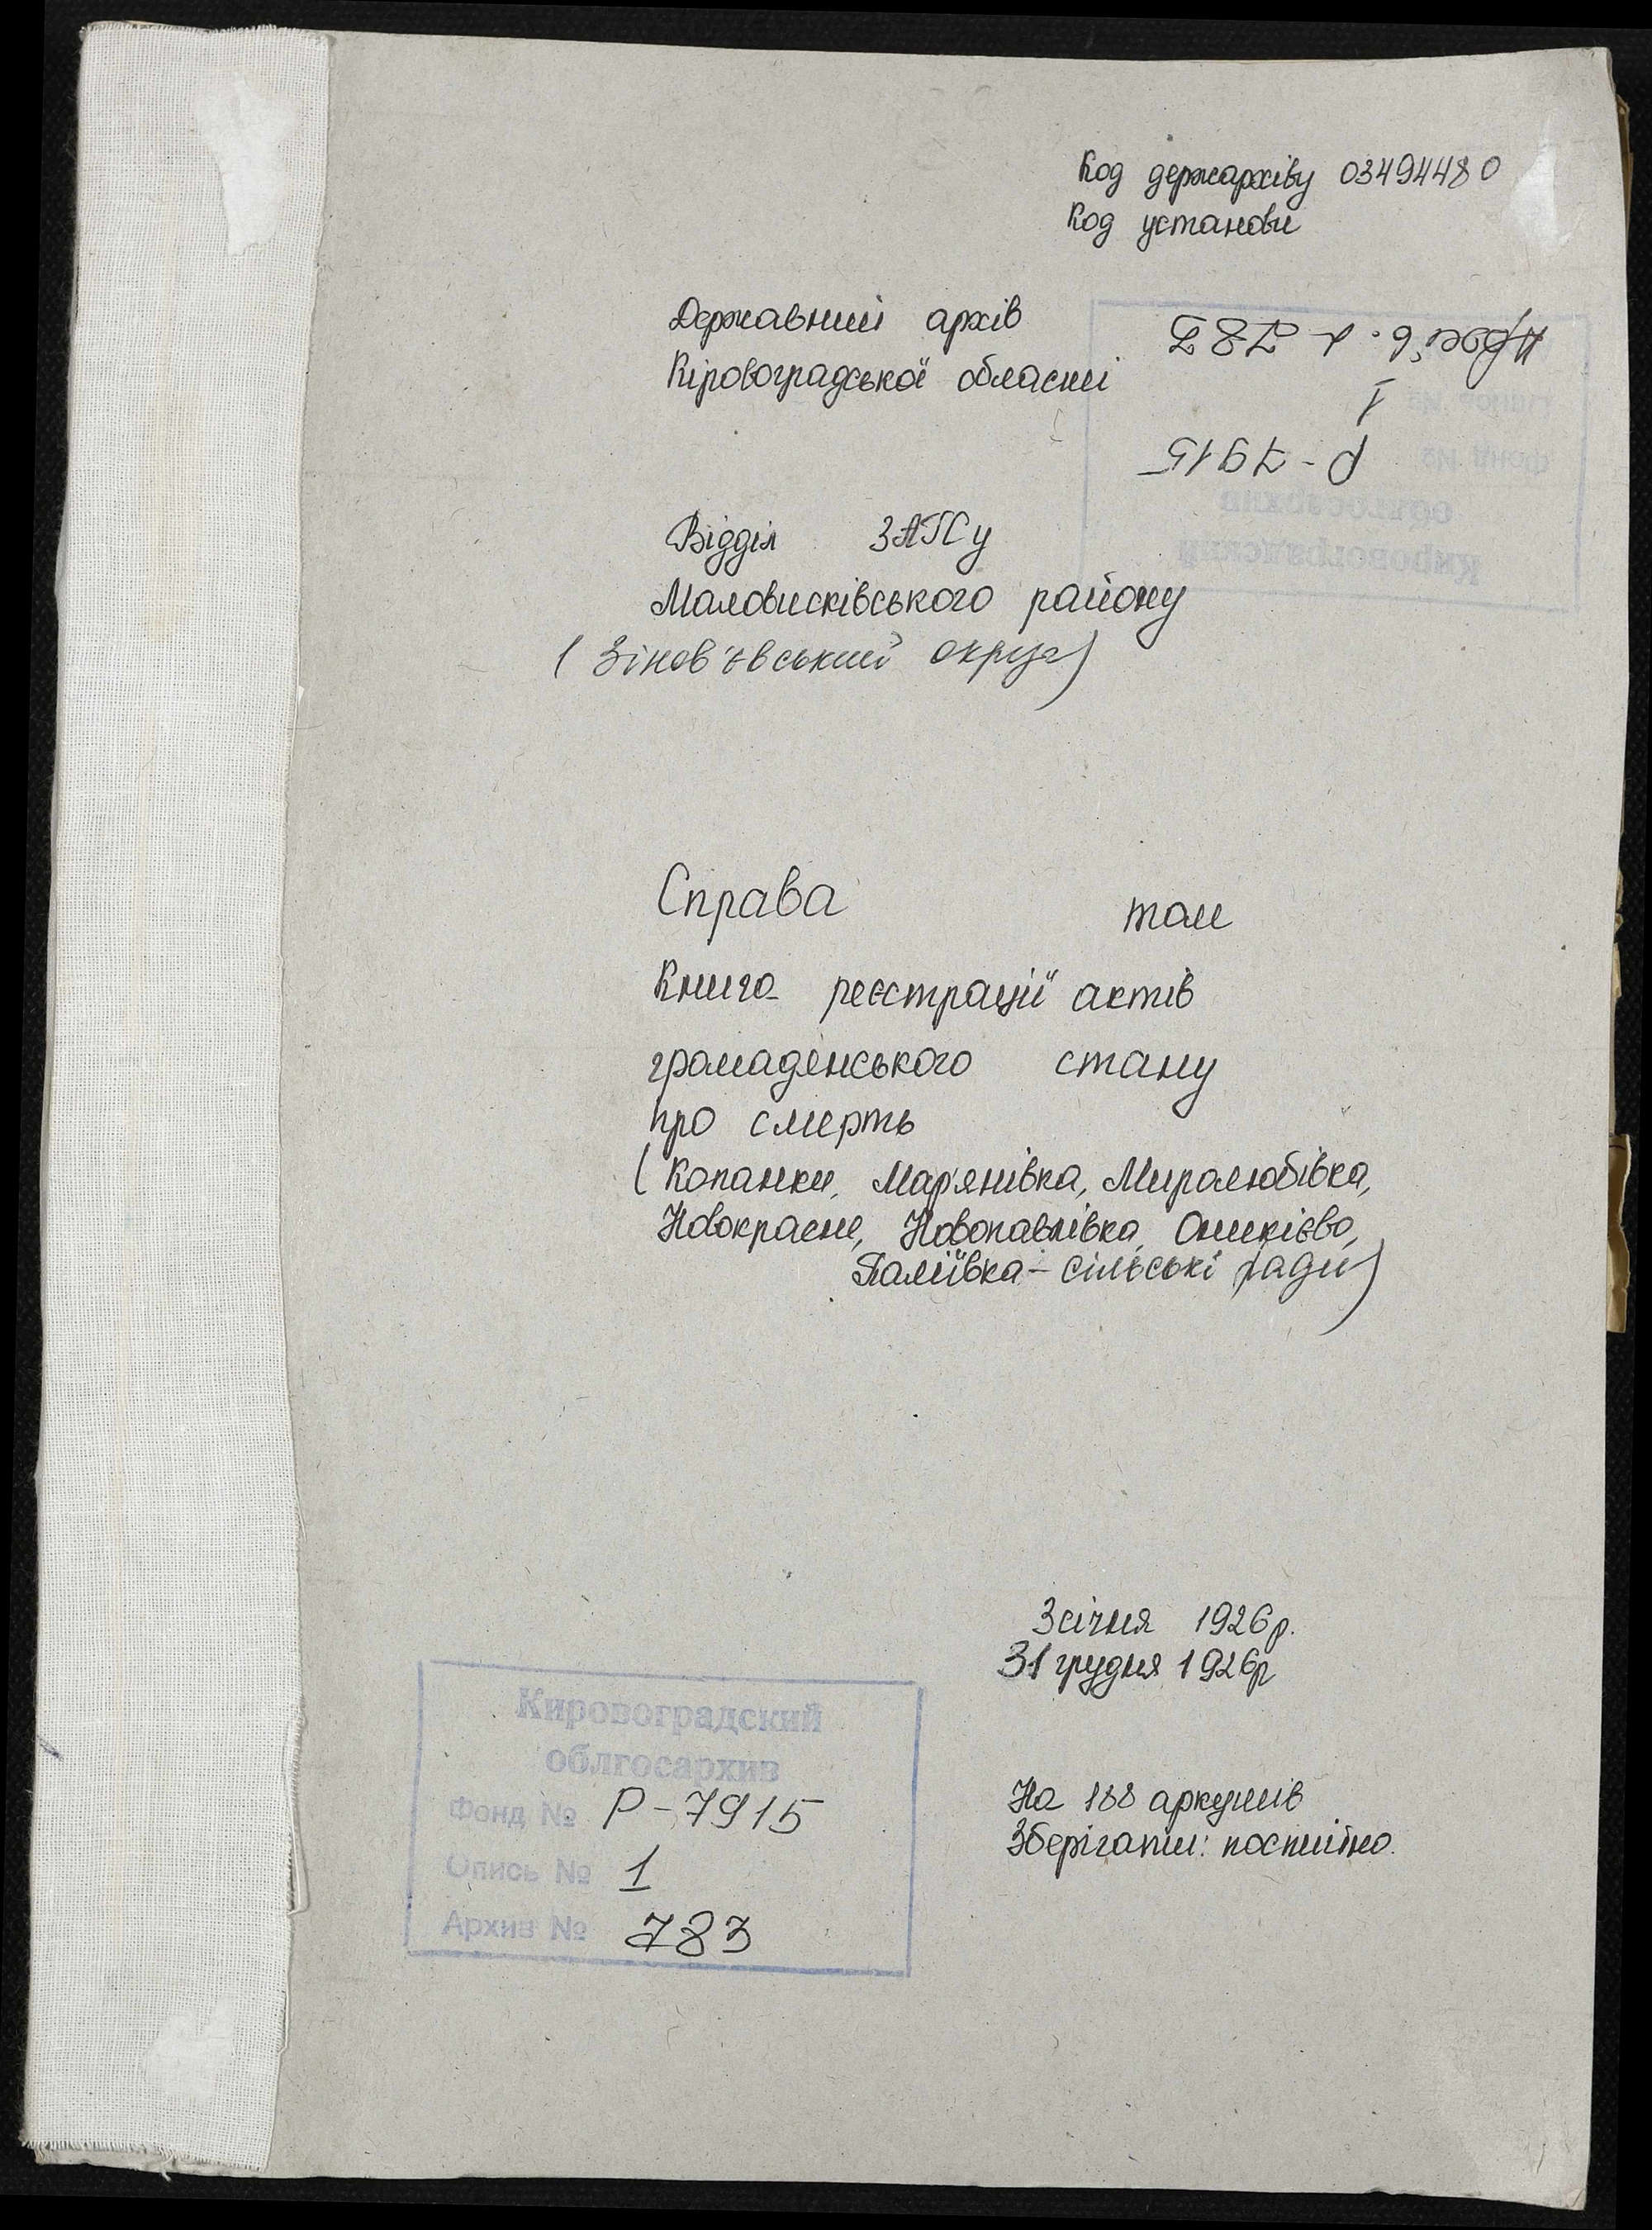 Код держархіву 03494480
Код установи
Державний архів
Кіровоградської області
Р-7915
1
Відділ ЗАГСу
Маловисківського району
(Зінов'євський округ)
Справа том
Книга реєстрації актів
громадянського стану
про смерть
(Копанки, Мар'янівка, Миролюбівка,
Новокрасне, Новопавлівка, Оникієво,
Паліївка - сільські ради)
3 січня 1926 р.
31 грудня 1926р
На 188 аркушів
Зберігати: постійно.
Кировоградский
облгосархив
Фонд № Р-7915
Опись № 1
Архив № 783